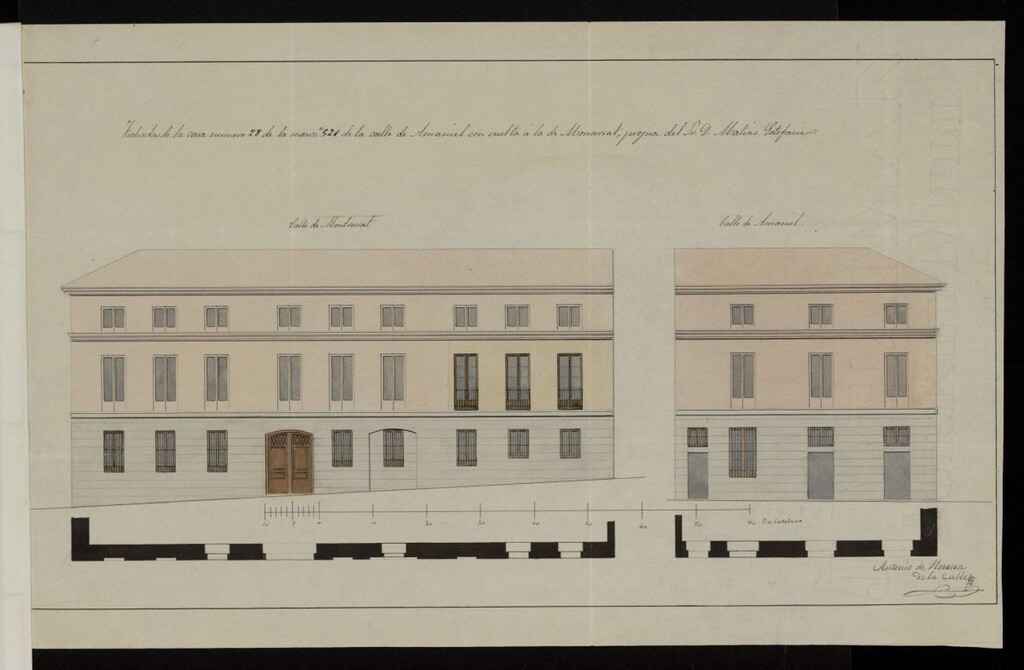 Fachadas de la casa numero 28 de la manzª 521 de la calle de Amaniel con vuelta á la de Monserrat, propia del Sr. D. Matias Estefani
Calle de Montserrat
Calle de Amaniel.
10 5 0 10 20 30 40 50 60 70 80 Pies Castellanos
Antonio de Herrera
de la Calle